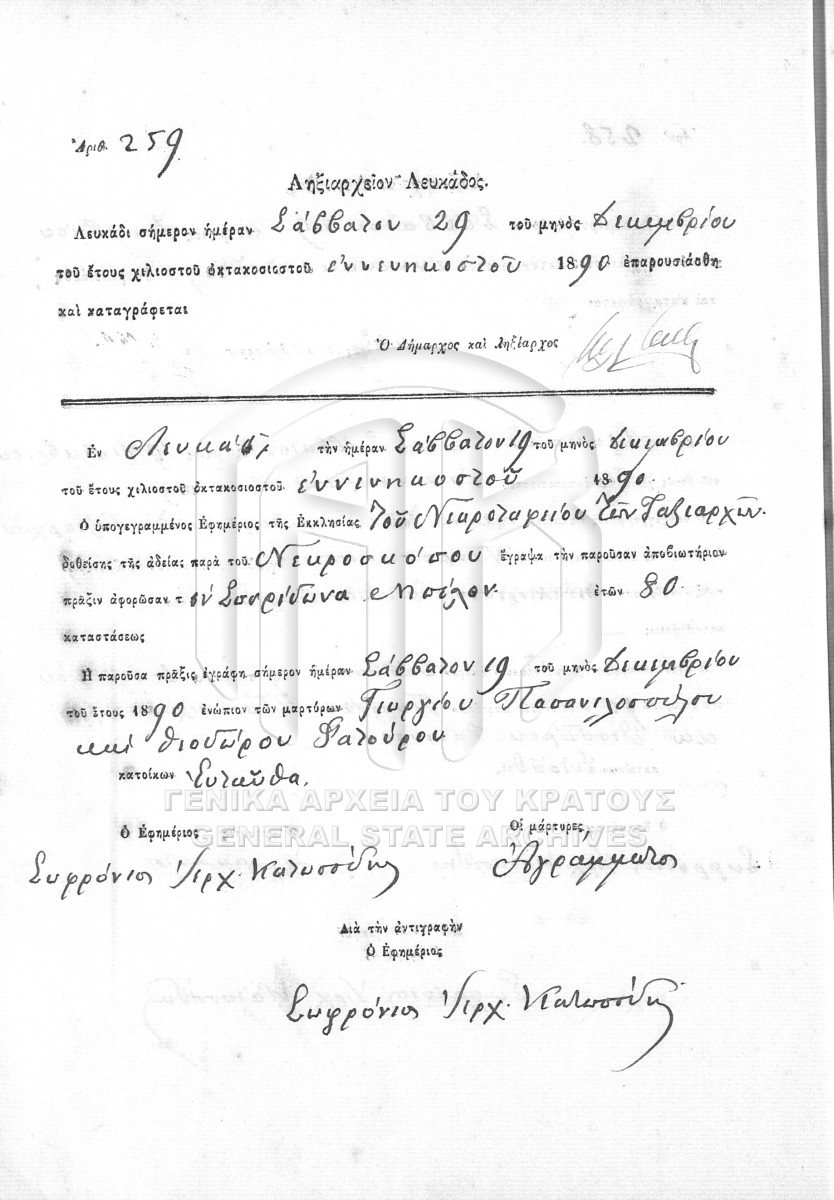 Ἀριθ. 259
Ληξιαρχεῖον Λευκάδος.
Λευκάδι σήμερον ἡμέραν Σάββατον 29 τοῦ μηνὸς Δεκεμβρίου
τοῦ ἔτους χιλιοστοῦ ὀκτακοσιοστοῦ ἐννενηκοστοῦ 1890 ἐπαρουσιάσθη
καὶ καταγράφεται
Ὁ Δήμαρχος καὶ Ληξίαρχος
Ἐν Λευκάδι τὴν ἡμέραν Σάββατον 19 τοῦ μηνὸς Δεκεμβρίου
τοῦ ἔτους χιλιοστοῦ ὀκτακοσιοστοῦ ἐννενηκοστοῦ 1890.
Ὁ ὑπογεγραμμένος Ἐφημέριος τῆς Ἐκκλησίας τοῦ Νεκροταφείου τῶν Ταξιαρχῶν.
δοθείσης τῆς ἀδείας παρὰ τοῦ Νεκροσκόπου ἔγραψα τὴν παροῦσαν ἀποβιωτήριον
πρᾶξιν ἀφορῶσαν τὸν Σπυρίδωνα ἐτῶν 80.
καταστάσεως
Ἡ παροῦσα πρᾶξις ἐγράφη σήμερον ἡμέραν Σάββατον 19 τοῦ μηνὸς Δεκεμβρίου
τοῦ ἔτους 1890 ἐνώπιον τῶν μαρτύρων Γεωργίου
καὶ Θεοδώρου Φατούρου
κατοίκων Ἐνταῦθα.
ΓΕΝΙΚΑ ΑΡΧΕΙΑ ΤΟΥ ΚΡΑΤΟΥΣ
GENERAL STATE ARCHIVES
Ὁ Ἐφημέριος Οἱ μάρτυρες,
Σωφρόνιος Ἱερχ. Ἀγράμματοι
Διὰ τὴν ἀντιγραφὴν
Ὁ Ἐφημέριος
Σωφρόνιος Ἱερχ.